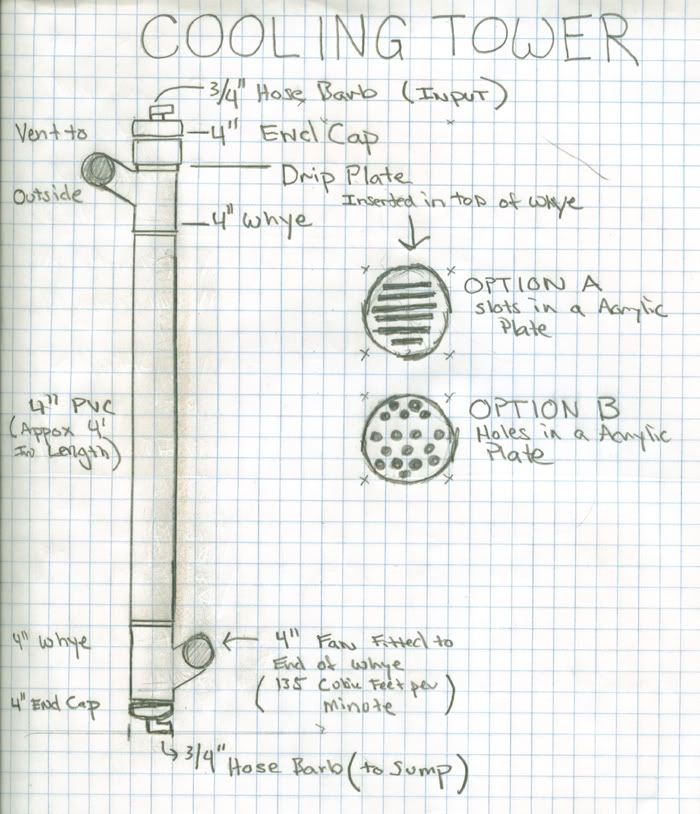 COOLING TOWER
3/4" Hose Barb (INPUT)
4" End Cap
Vent to
Outside
Drip Plate
Inserted in top of whye
4" Whye
OPTION A
slots in a Acrylic
Plate
4" PVC
(Appox 4'
In Length)
OPTION B
Holes in a Acrylic
Plate
4" Whye
4" Fan Fitted to
End of whye
(135 Cubic Feet per
minote)
4" End Cap
3/4" Hose Barb (to Sump)